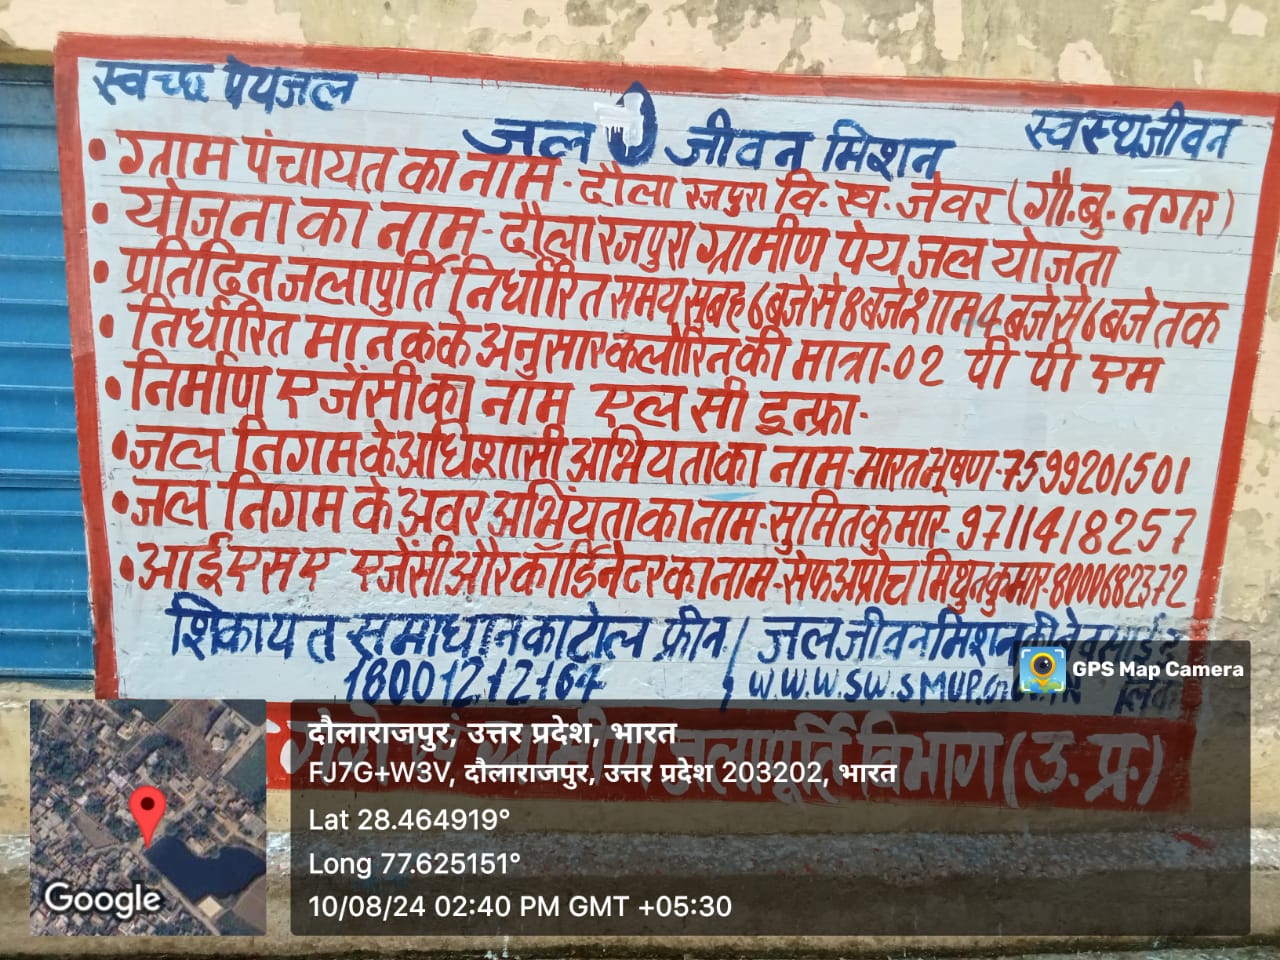 स्वच्छ पेयजल
जल जीवन मिशन
स्वस्थजीवन
• ग्राम पंचायत का नाम - दौला रजपुरा वि. ख. जेवर (गौ. बु. नगर)
• योजना का नाम - दौला रजपुरा ग्रामीण पेय जल योजना
• प्रतिदिन जलापुर्ति निर्धारित समय सुबह 6 बजे से 8 बजे शाम 4 बजे से 6 बजे तक
• निर्धारित मानक के अनुसार क्लोरिन की मात्रा - 02 पी पी एम
• निर्माण एजेंसी का नाम एल सी इन्फ्रा -
• जल निगम के अधिशासी अभियंता का नाम - भारत भूषण - 7599201501
• जल निगम के अवर अभियंता का नाम - सुमित कुमार - 9711418257
• आई एस ए एजेंसी और कॉर्डिनेटर का नाम - सेफ अप्रोच मिथुन कुमार - 8000682372
शिकायत समाधान का टोल फ्री न / जल जीवन मिशन की वेबसाईट
18001212164 / WWW.SW.SMUP.
ग्रामीण जलापूर्ति विभाग (उ. प्र.)
GPS Map Camera
दौलाराजपुर, उत्तर प्रदेश, भारत
FJ7G+W3V, दौलाराजपुर, उत्तर प्रदेश 203202, भारत
Lat 28.464919°
Long 77.625151°
10/08/24 02:40 PM GMT +05:30
Google